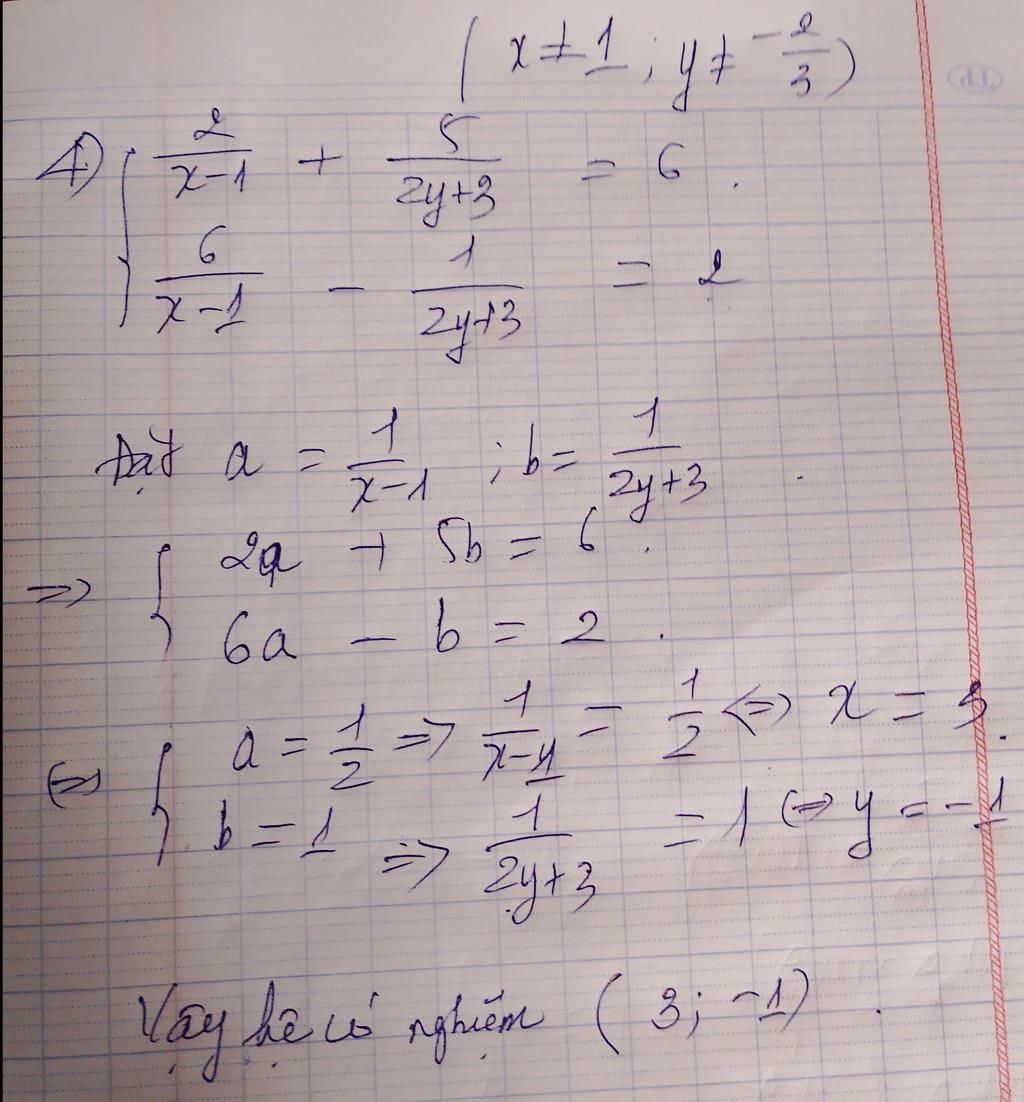 ( x ≠ 1 ; y ≠ -2/3 )
4) { 2/(x-1) + 5/(2y+3) = 6 .
6/(x-1) - 1/(2y+3) = 2
Đặt a = 1/(x-1) ; b = 1/(2y+3) .
=> { 2a + 5b = 6 .
6a - b = 2 .
<=> { a = 1/2 => 1/(x-1) = 1/2 <=> x = 3 .
b = 1 => 1/(2y+3) = 1 <=> y = -1
Vậy hệ có nghiệm ( 3 ; -1 ) .